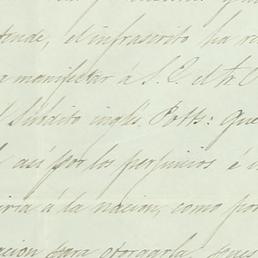 tende, el infrascrito ha re
a manifestar á S. E. el Sr.
l súbdito inglés Potts: que
así por los perjuicios é
iría á la nacion, como por
acion para otorgarla, pues